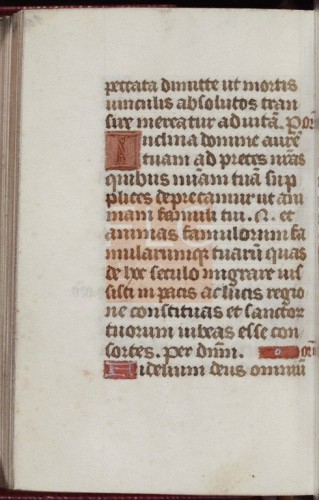 peccata dimitte ut mortis
vinculis absolutos tran
sire mereatur ad vitā. Por
Inclina domine aurē
tuam ad preces nr̄as
quibus miām tuā sup
plices deprecamur ut ani
mam famuli tui. N. et
animas famulorum fa
mularumq; tuarū quas
de hoc seculo migrare ius
sisti in pacis ac lucis regio
ne constituas et sanctor
tuorum iubeas esse con
sortes. Per dnm̄.
Fidelium deus omniū